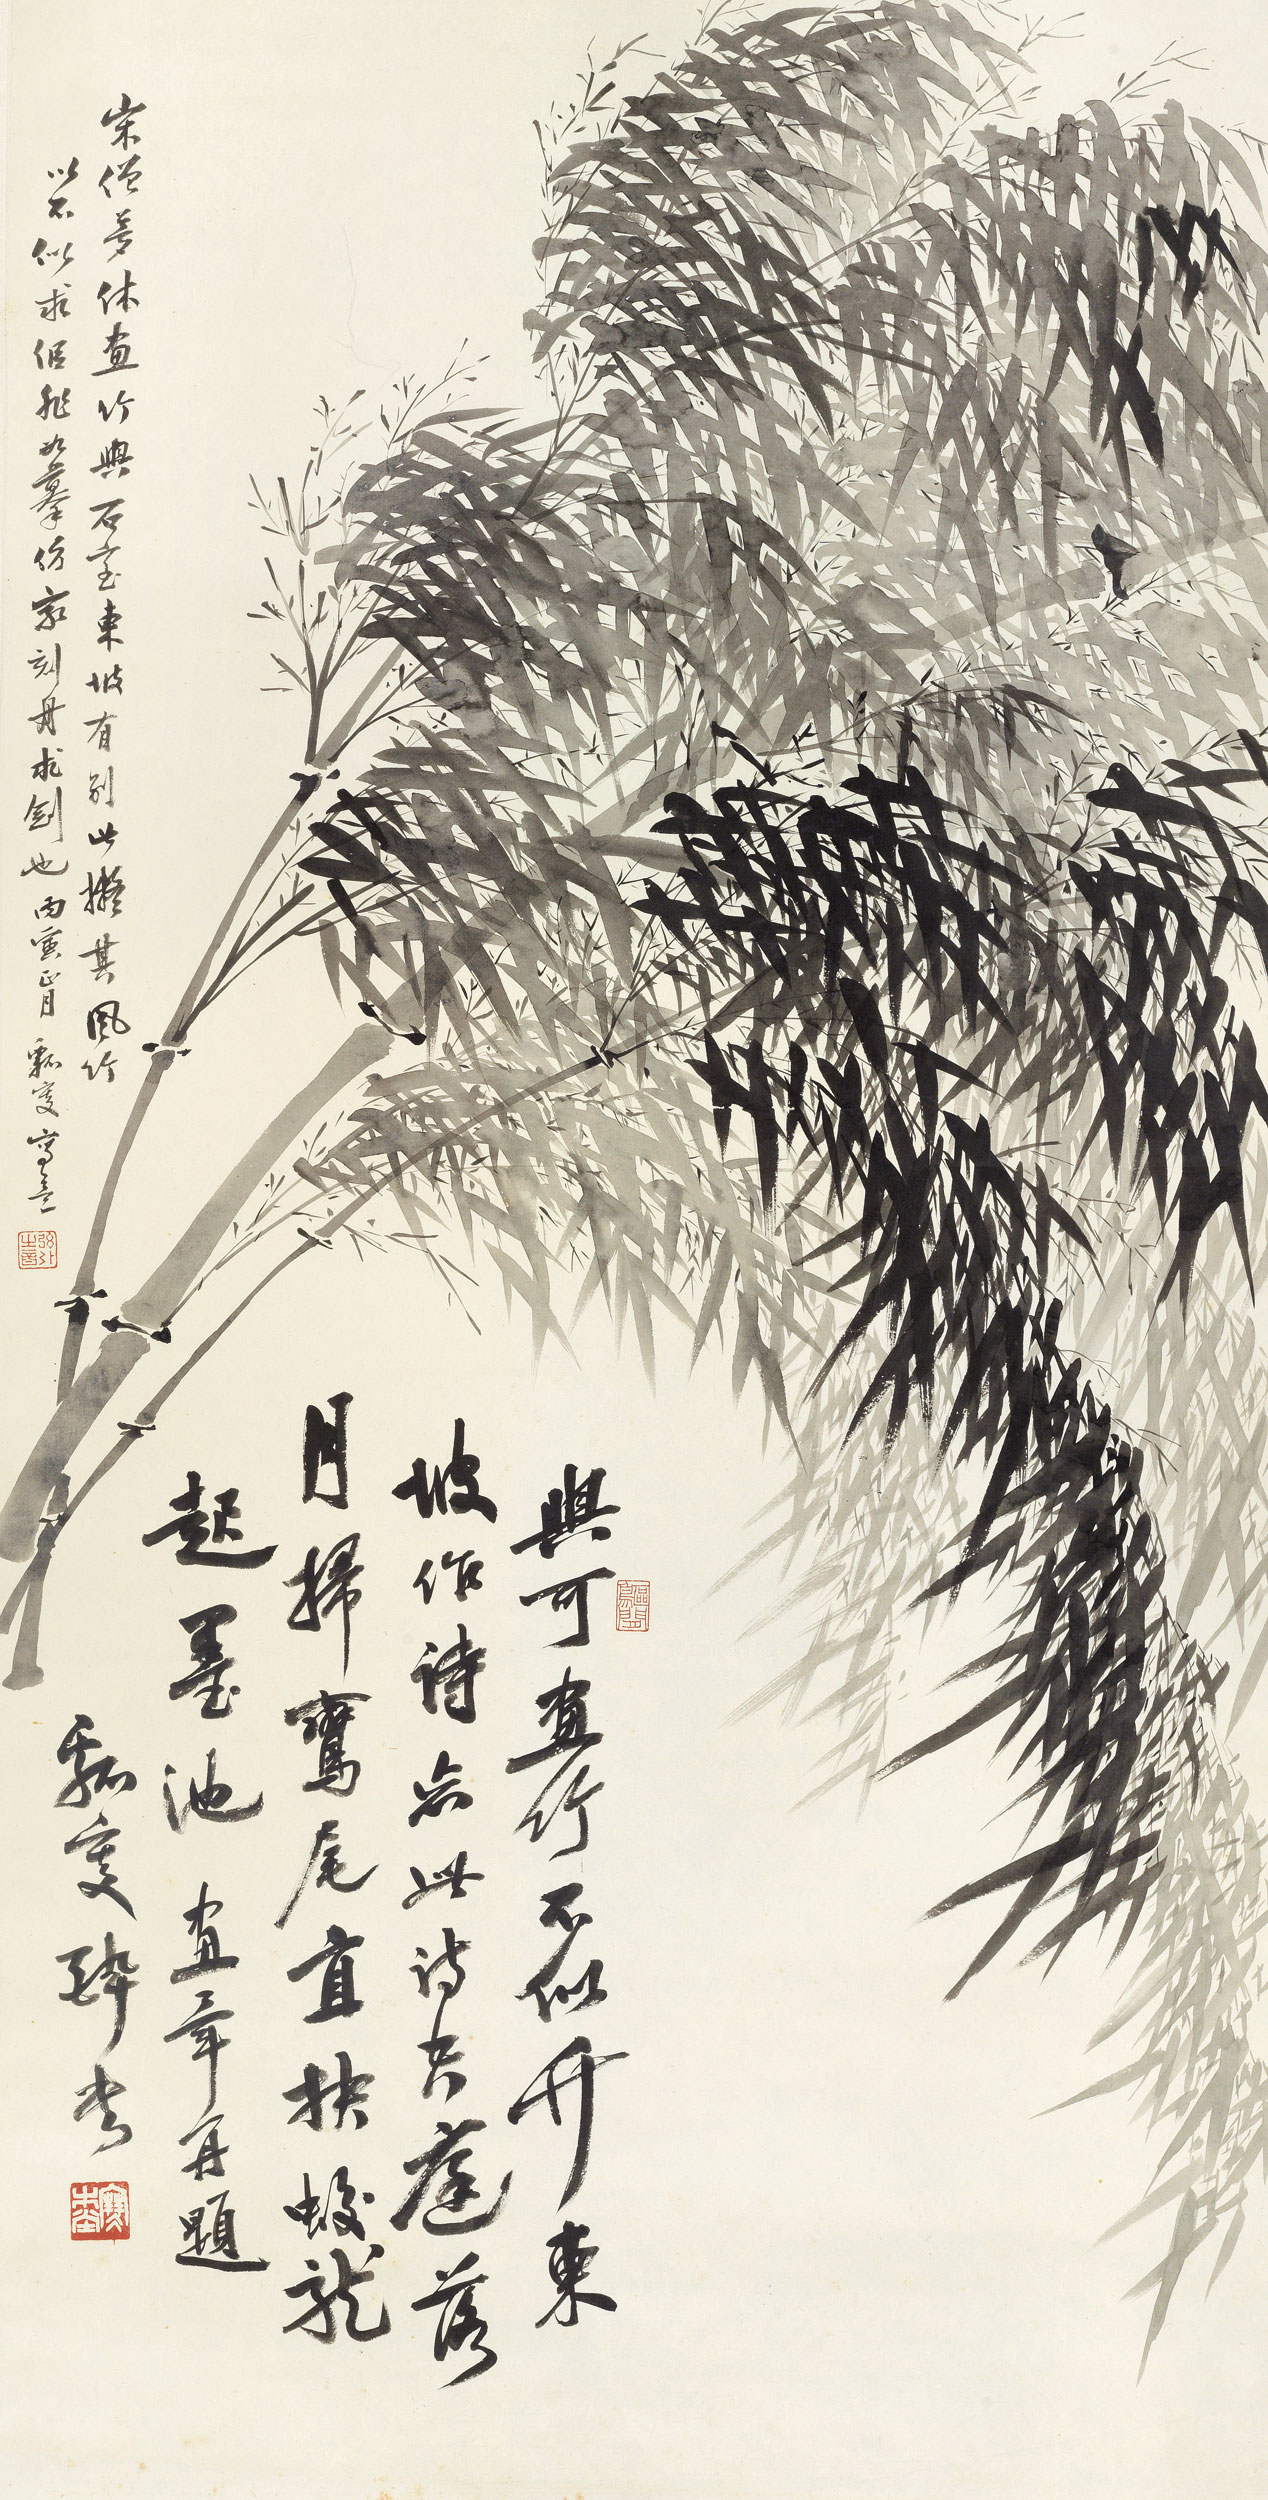 宋僧夢休畫竹與石室東坡有別此擬其風竹
以不似求似非如摹仿家刻舟求劍也丙寅正月瓠叟寫意
與可畫竹不似竹東
坡作詩忘此詩空庭落
月掃鸞尾直扶蛟龍
起墨池 畫竟再題
瓠叟醉書